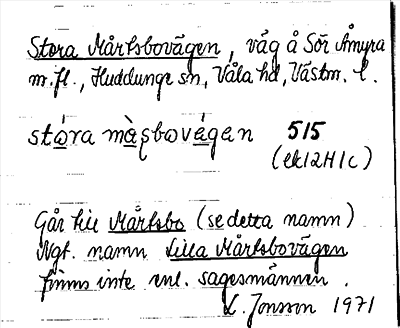 Stora Mårtsbovägen, väg å Sör Åmyra
m.fl., Huddunge sn, Våla hd, Västm. l.
stóra màʂbovä́gen 515
(ek12H1c)
Går till Mårtsbo (se detta namn)
Ngt. namn Lilla Mårtsbovägen
finns inte enl. sagesmännen.
L. Jonsson 1971